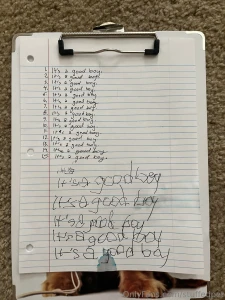 1. It's a good boy.
2. It's a good boy.
3. It's a good boy.
4. It's a good boy.
5. It's a good boy.
6. It's a good boy.
7. It's a good boy.
8. It's a good boy.
9. It's a good boy.
10. It's a good boy.
11. It's a good boy.
12. It's a good boy.
13. It's a good boy.
14. It's a good boy.
15. It's a good boy.
It's a good boy
It's a good boy
It's a good boy
It's a good boy
It's a good boy